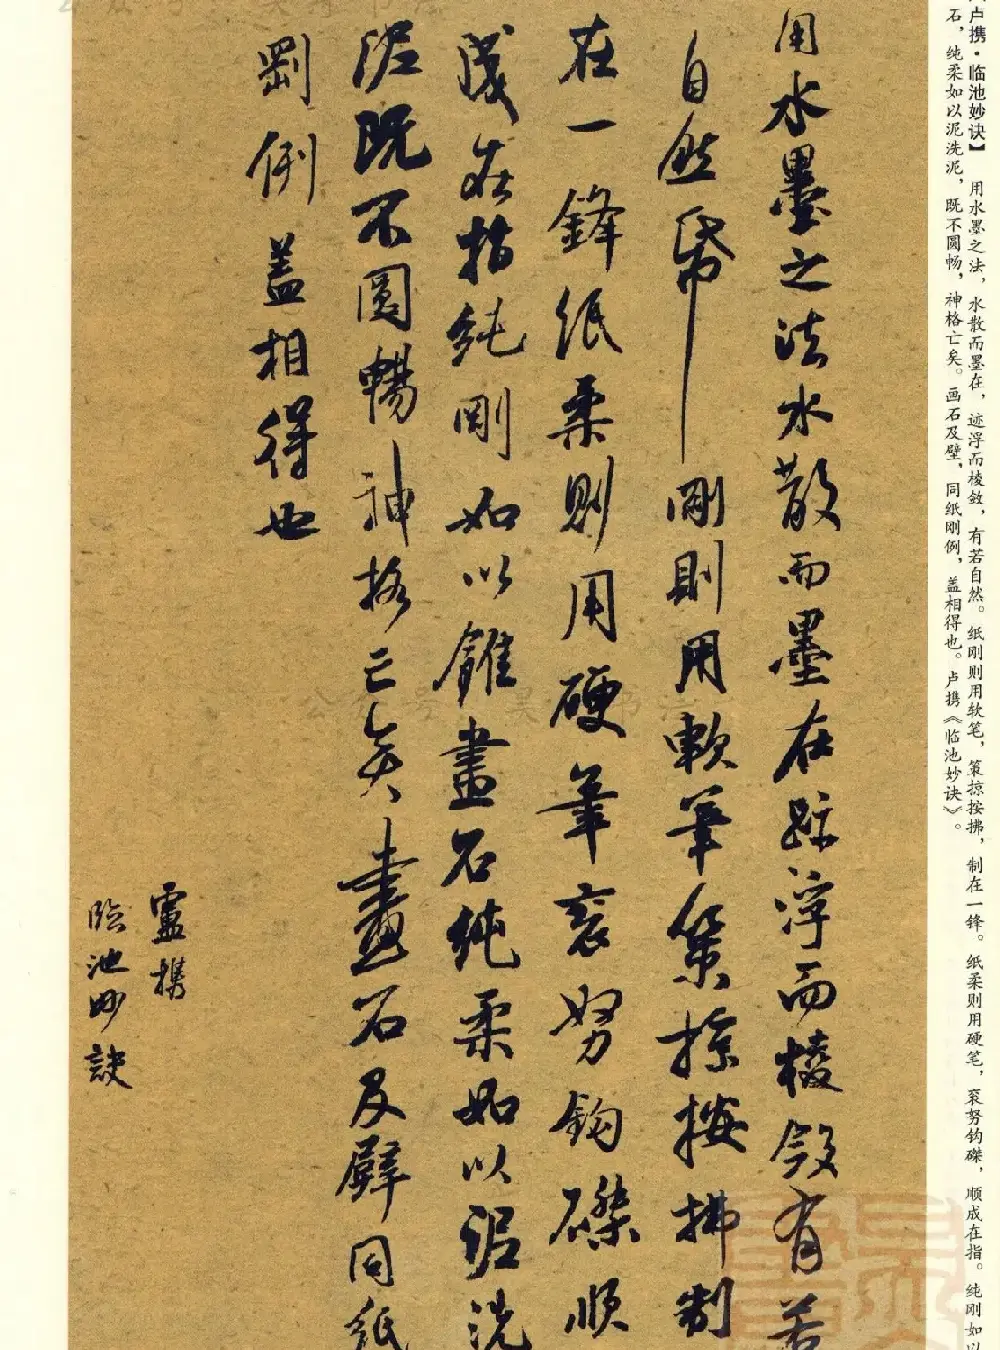 卢携·临池妙诀】 用水墨之法，水散而墨在，迹浮而棱敛，有若自然。纸刚则用软笔，策掠按拂，制在一锋。纸柔则用硬笔，衮努钩磔，顺成在指。纯刚如以
石，纯柔如以泥洗泥，既不圆畅，神格亡矣。画石及壁，同纸刚例，盖相得也。卢携《临池妙诀》。
用水墨之法水散而墨在跡浮而棱斂有若
自然帋剛則用軟筆策掠按拂制
在一鋒紙柔則用硬筆衮努鈎磔順
成在指純剛如以錐畫石純柔如以泥洗
泥既不圓暢神格亡矣畫石及壁同紙
剛例蓋相得也
盧携
臨池妙訣